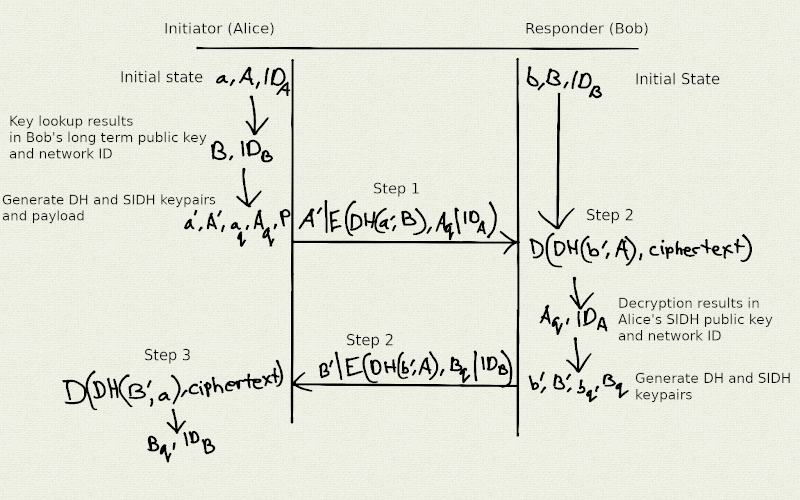 Initiator (Alice)
Responder (Bob)
Initial state a, A, ID_A
b, B, ID_B Initial State
Key lookup results
in Bob's long term public key
and network ID
B, ID_B
Generate DH and SIDH keypairs
and payload
a', A', a_q, A_q, P
Step 1
A'|E(DH(a', B), A_q|ID_A)
Step 2
D(DH(b', A), ciphertext)
Decryption results in
Alice's SIDH public key
and network ID
A_q, ID_A
Step 2
B'|E(DH(b', A), B_q|ID_B)
b', B', b_q, B_q
Generate DH and SIDH
keypairs
Step 3
D(DH(B', a), ciphertext)
B_q, ID_B